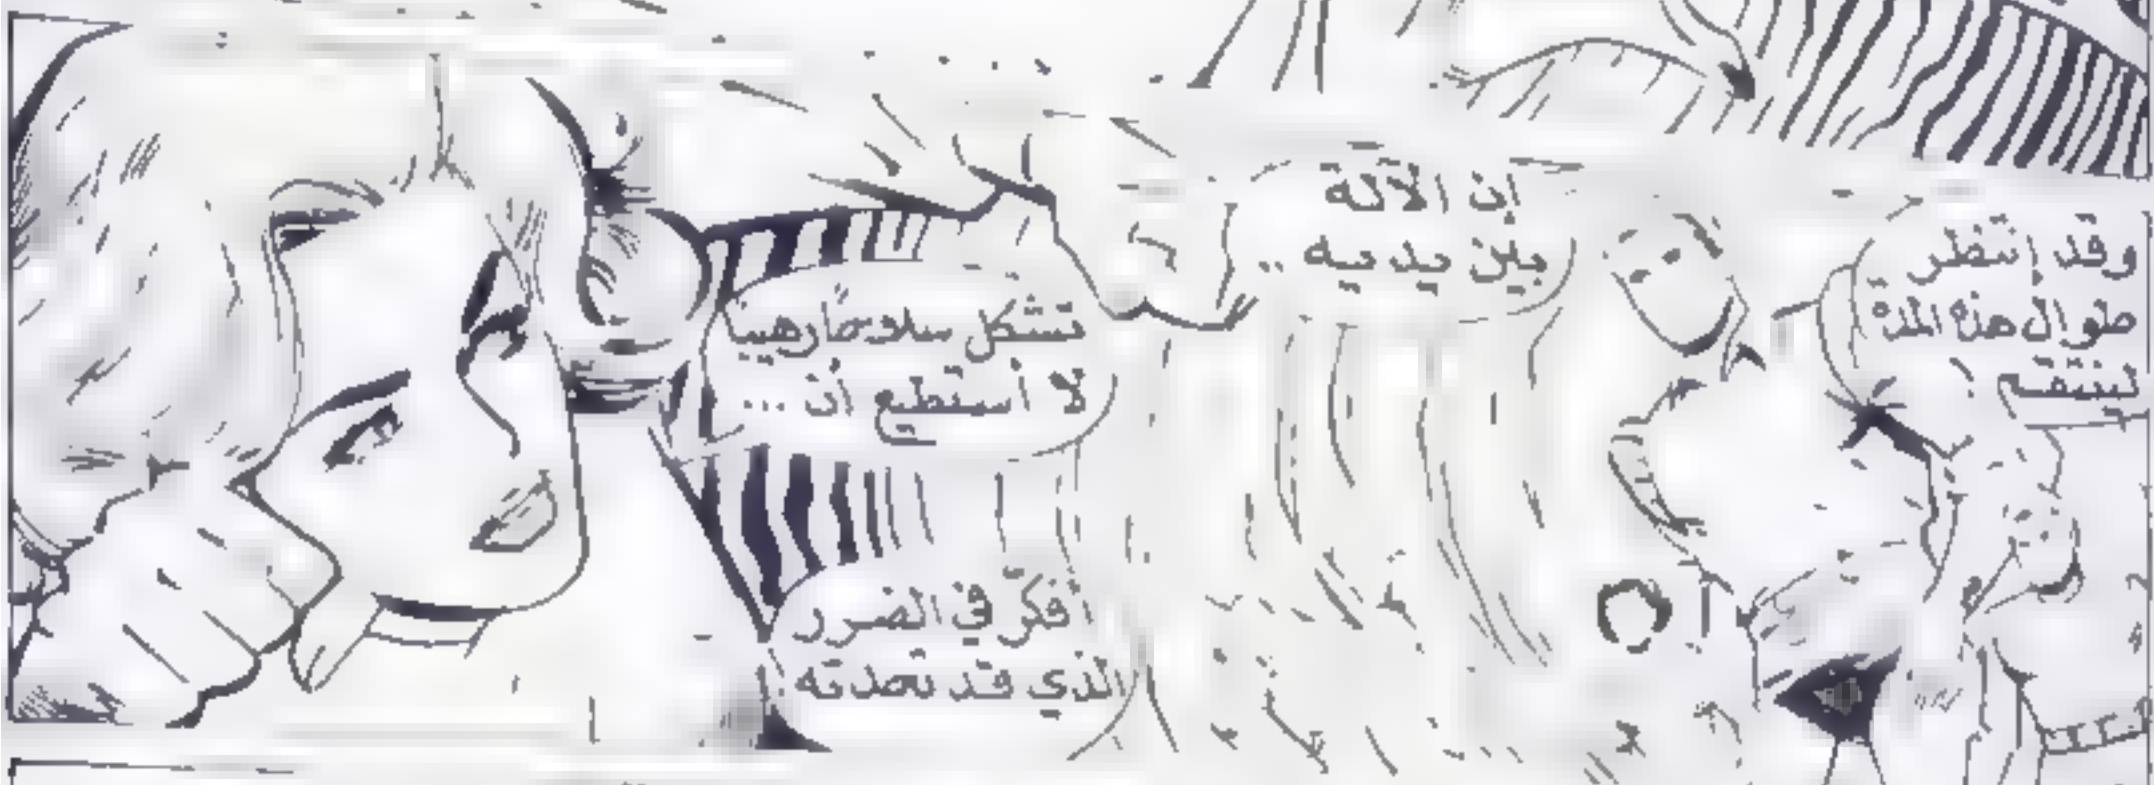 وقد إنتظر
طوال هذه المدة
لينتقم !
إن الآلة
بين يديه ..
تشكل سلاحاً رهيباً
لا أستطيع أن ...
أفكّر في الضرر
الذي قد تحدثه